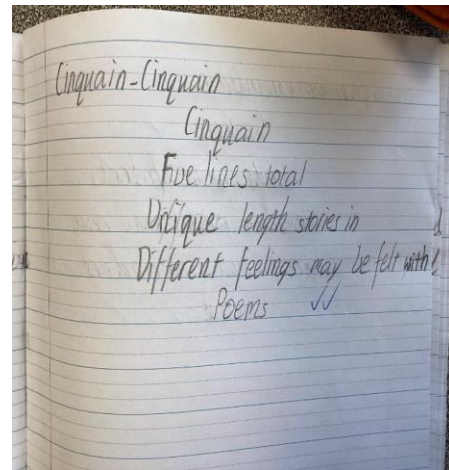 Cinquain-Cinquain
Cinquain
Five lines total
Unique length stories in
Different feelings may be felt with
Poems